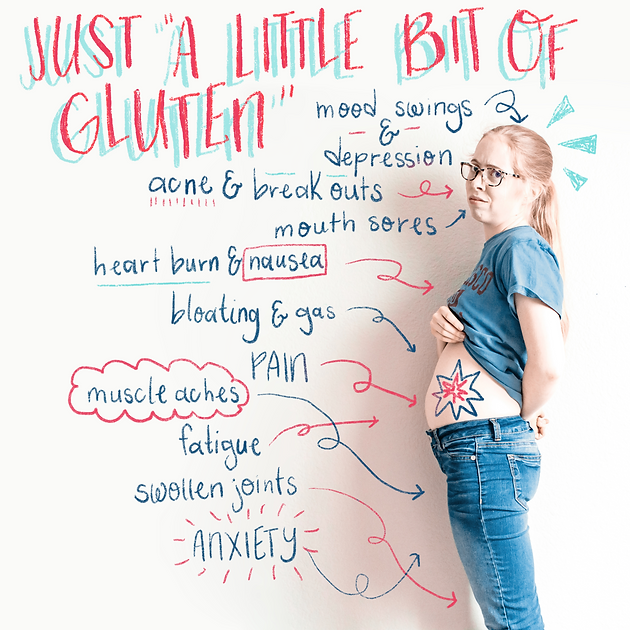 JUST "A LITTLE BIT OF
GLUTEN"
mood swings
&
depression
acne & break outs
mouth sores
heart burn & nausea
bloating & gas
PAIN
muscle aches
fatigue
swollen joints
ANXIETY